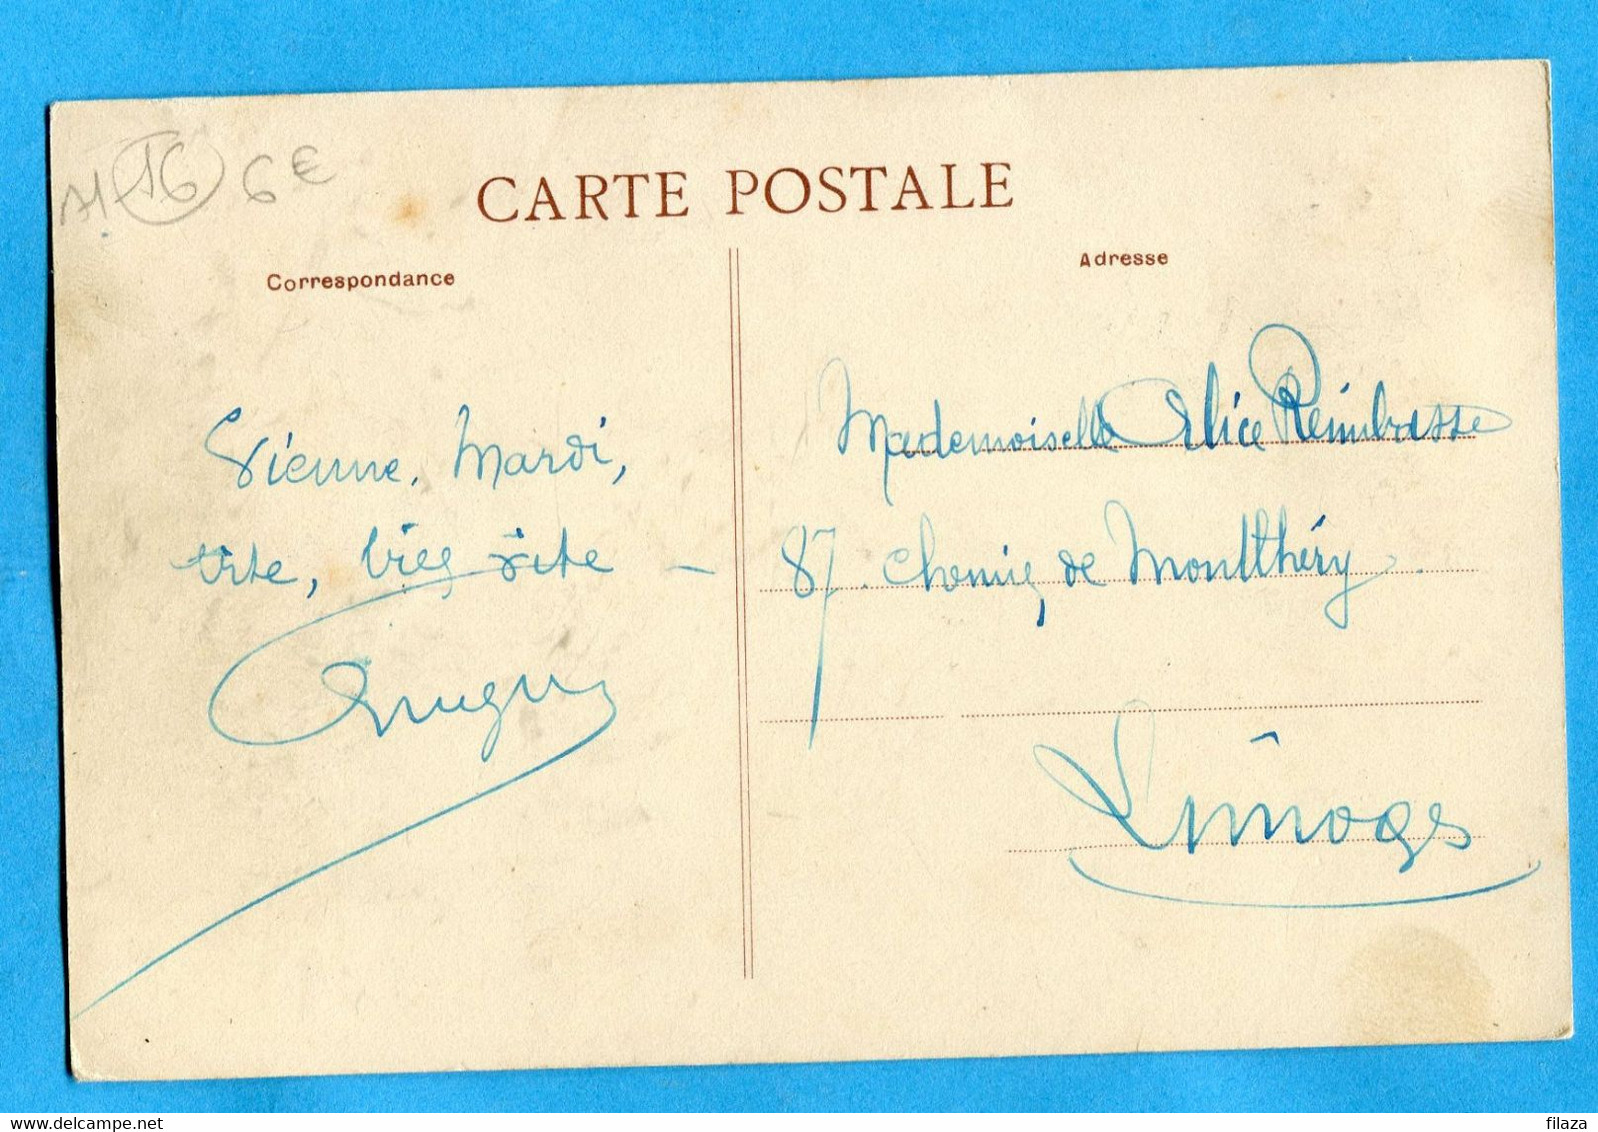 A1 16 6€
CARTE POSTALE
Correspondance
Adresse
Vienne, Mardi,
vite, bien vite –
Mademoiselle Alice Reimbasse
87 Chemin de Montlhéry
Limoges
filaza